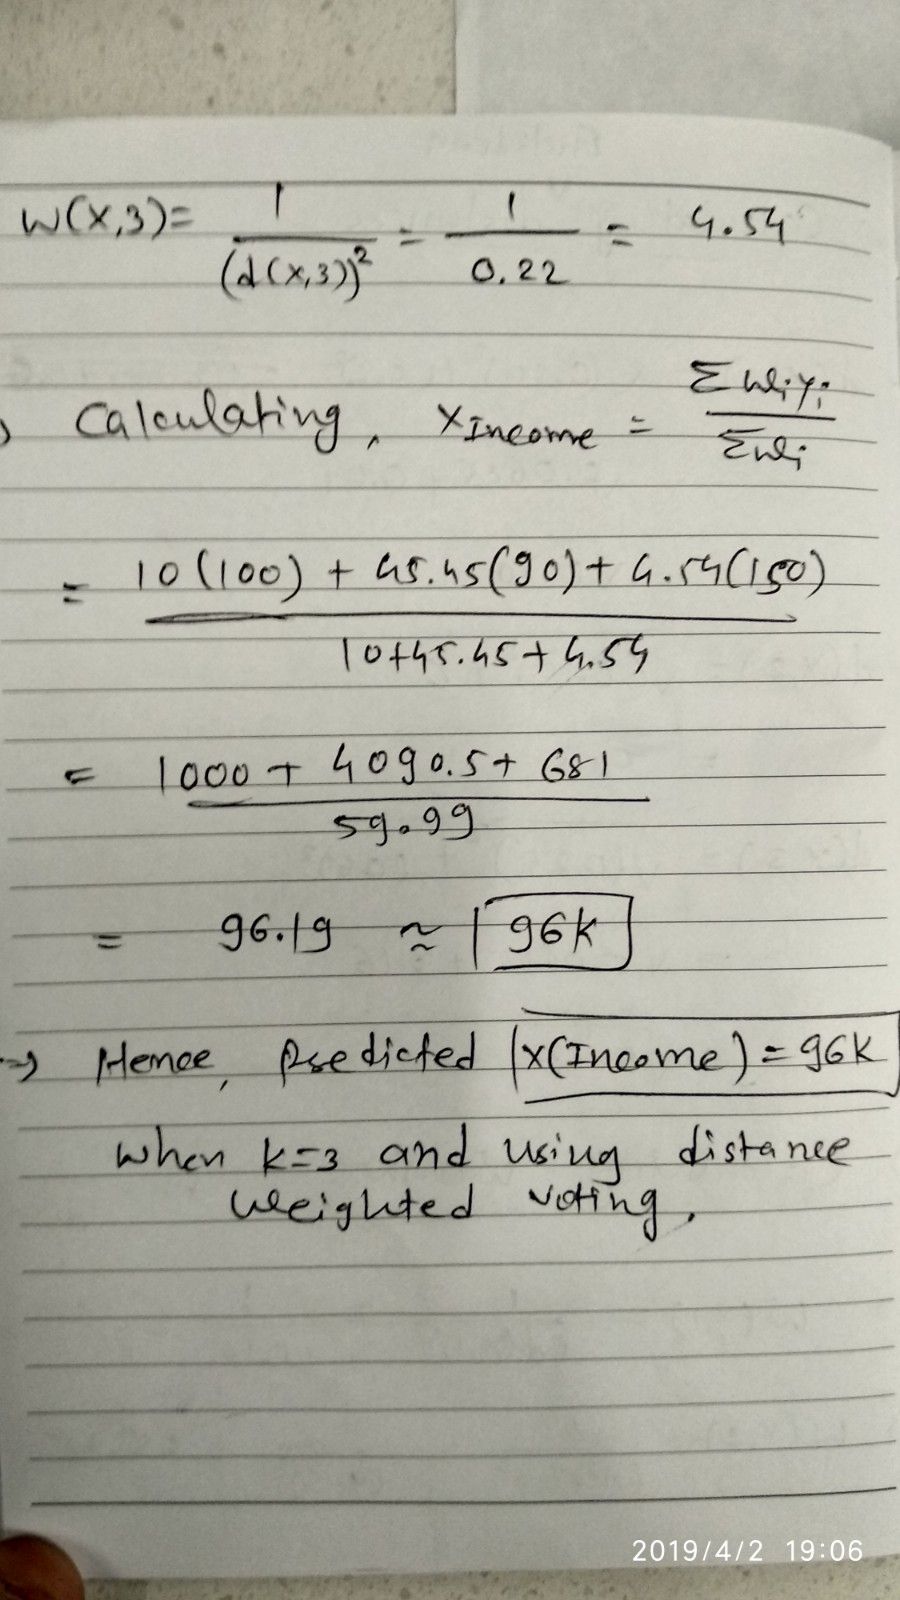 W(X,3)= 1/(d(x,3))² = 1/0.22 = 4.54
Calculating, XIncome = Σwiyi/Σwi
= 10(100) + 45.45(90) + 4.54(150)
10+45.45+4.54
= 1000 + 4090.5 + 681
59.99
= 96.19 ≈ 96K
→ Hence, Predicted X(Income) = 96K
when k=3 and using distance
weighted voting,
2019/4/2 19:06